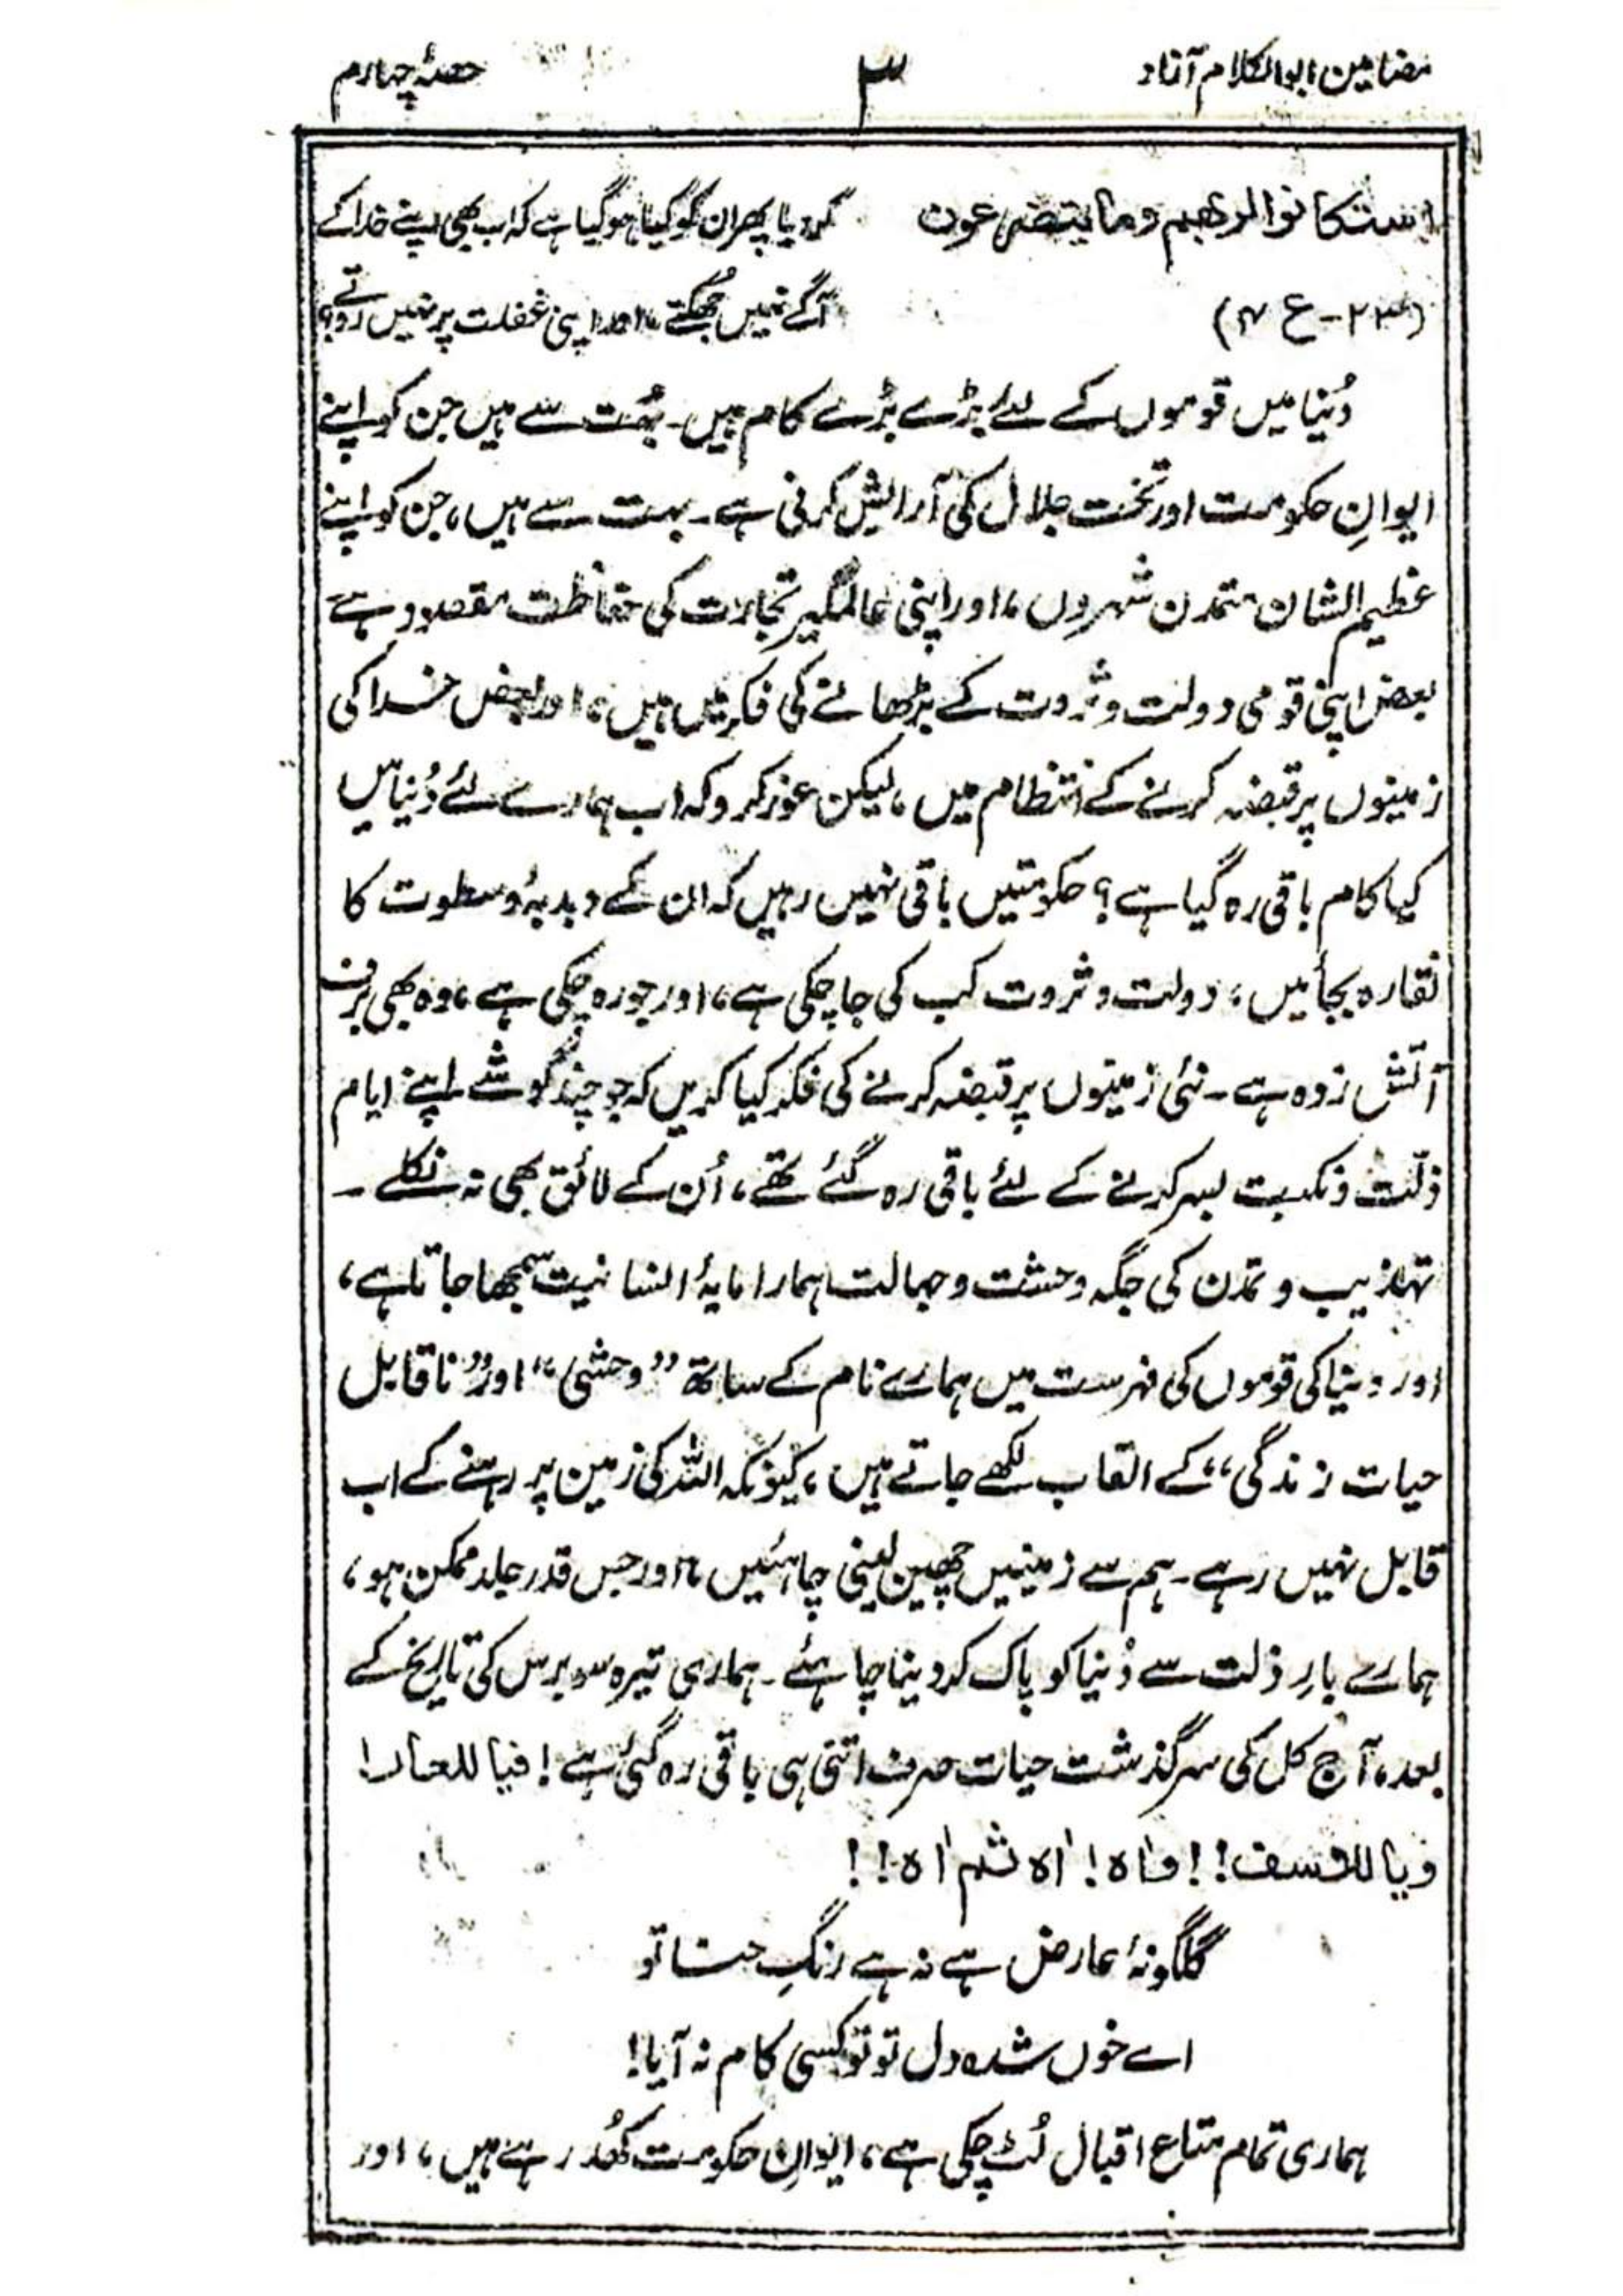 مضامین ابوالکلام آزاد ۳ حصۂ چہارم
استکانوا لربھم وما یتضرعون کردیا پھر ان کو کیا ہوگیا ہے کہ اب بھی اپنے خدا کے
(۲۳ - ع ۴) آگے نہیں جھکتے، اور اپنی غفلت پر نہیں روتے؟
دُنیا میں قوموں کے لئے بڑے بڑے کام ہیں۔ بہُت سے ہیں جن کو اپنے
ایوانِ حکومت اور تخت جلال کی آرایش کرنی ہے۔ بہت سے ہیں، جن کو اپنے
عظیم الشان متمدن شہروں، اور اپنی عالمگیر تجارت کی حفاظت مقصود ہے
بعض اپنی قومی دولت و ثروت کے بڑھانے کی فکر میں ہیں، اور بعض خدا کی
زمینوں پر قبضہ کرنے کے انتظام میں، لیکن غور کرو کہ اب ہمارے لئے دُنیا میں
کیا کام باقی رہ گیا ہے؟ حکومتیں باقی نہیں رہیں کہ ان کے دبدبۂ و سطوت کا
نقارہ بجائیں، دولت و ثروت کب کی جا چکی ہے، اور جو رہ چکی ہے، وہ بھی برف
آتش زدہ ہے۔ نئی زمینوں پر قبضہ کرنے کی فکر کیا کریں کہ جو چند گوشے اپنے ایام
ذلّت و نکبت بسر کرنے کے لئے باقی رہ گئے تھے، اُن کے لائق بھی نہ نکلے۔
تہذیب و تمدن کی جگہ وحشت و جہالت ہمارا مایۂ انسانیت سمجھا جاتا ہے،
اور دنیا کی قوموں کی فہرست میں ہمارے نام کے ساتھ ”وحشی“ اور ”ناقابل
حیات زندگی“ کے القاب لکھے جاتے ہیں، کیونکہ اللہ کی زمین پر رہنے کے اب
قابل نہیں رہے۔ ہم سے زمینیں چھین لینی چاہئیں، اور جس قدر جلد ممکن ہو،
ہمارے بارِ ذلت سے دُنیا کو پاک کر دینا چاہئے۔ ہماری تیرہ سو برس کی تاریخ کے
بعد، آج کل کی سرگذشت حیات صرف اتنی ہی باقی رہ گئی ہے! فیا للعار!
ویا للاسف!! واہ! اٰہ ثم اٰہ!!
گلگونۂ عارض ہے نہ ہے رنگِ حنا تو
اے خوں شدہ دل تو تو کسی کام نہ آیا!
ہماری تمام متاع اقبال لُٹ چکی ہے، ایوانِ حکومت کھُد رہے ہیں، اور